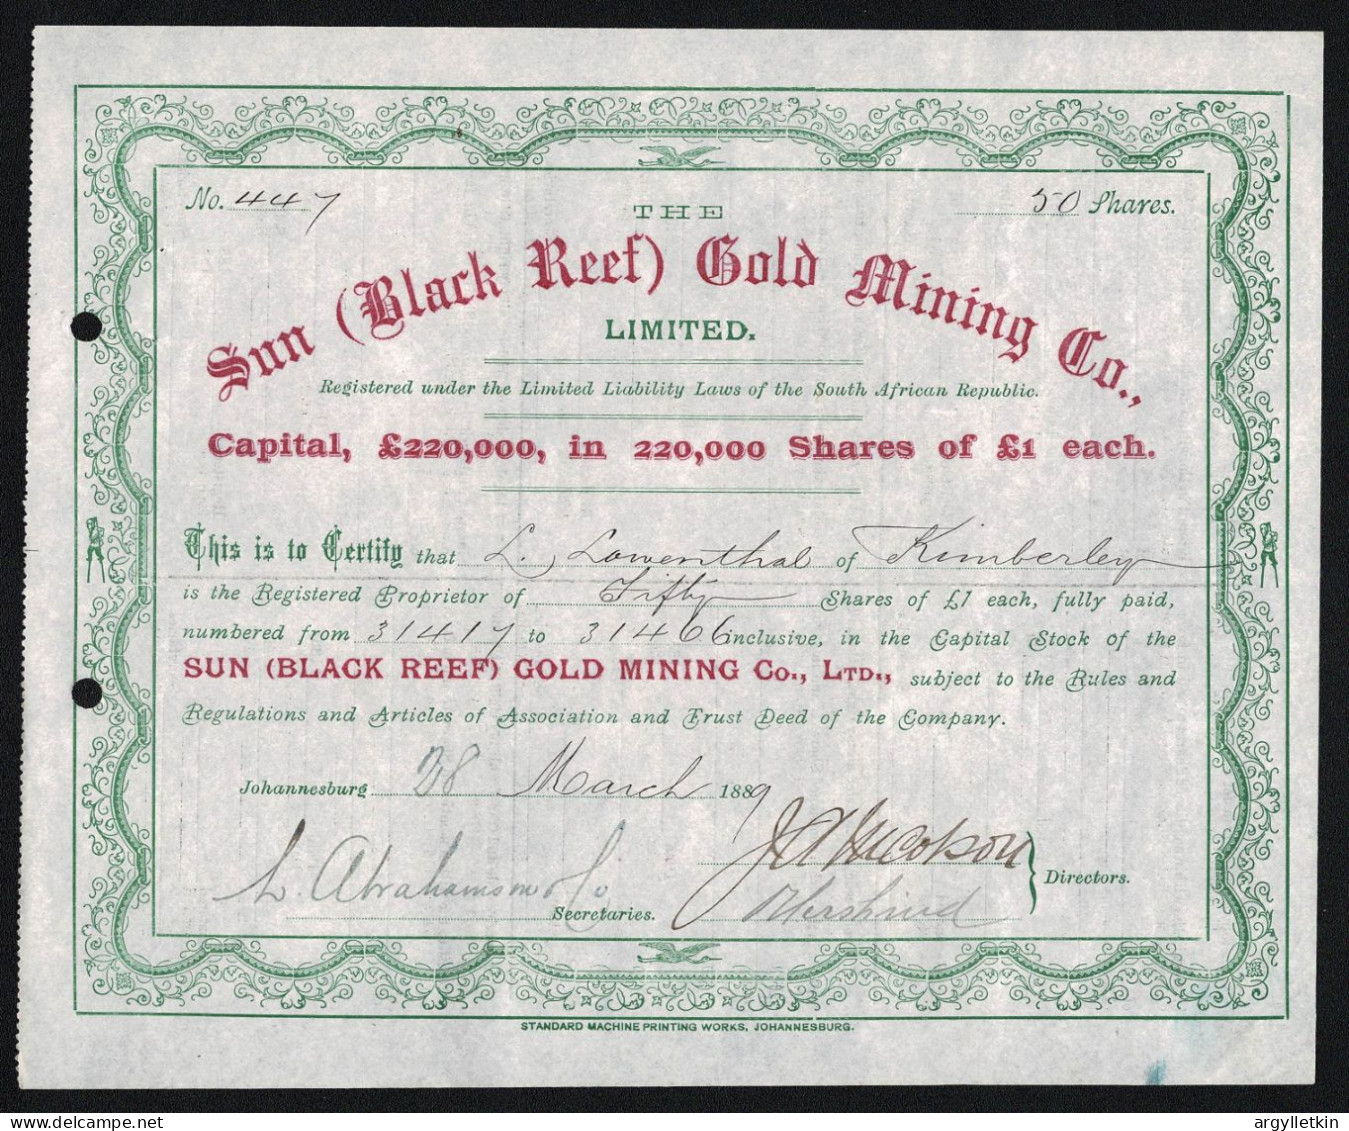 No. 447
50 Shares.
THE
Sun (Black Reef) Gold Mining Co.,
LIMITED.
Registered under the Limited Liability Laws of the South African Republic.
Capital, £220,000, in 220,000 Shares of £1 each.
This is to Certify that L. Lowenthal of Kimberley
is the Registered Proprietor of Fifty Shares of £1 each, fully paid,
numbered from 31417 to 31466 inclusive, in the Capital Stock of the
SUN (BLACK REEF) GOLD MINING Co., LTD., subject to the Rules and
Regulations and Articles of Association and Trust Deed of the Company.
Johannesburg 28 March 1889
L. Abrahamson & Co
Secretaries.
Jacobson
Directors.
STANDARD MACHINE PRINTING WORKS, JOHANNESBURG.
delcampe.net
argylletkin